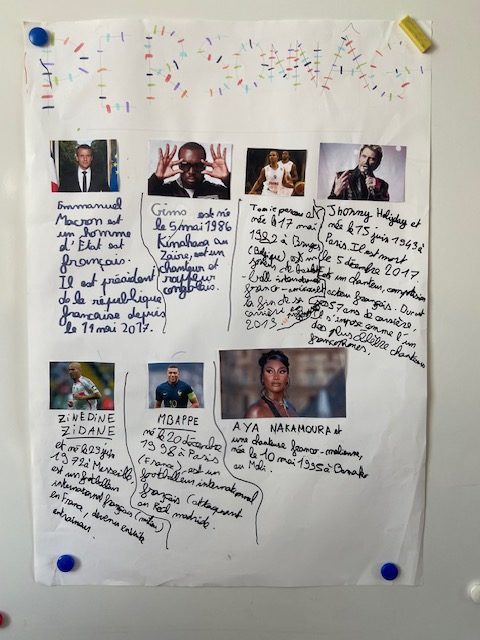 Emmanuel
Macron est
un homme
d'État est
français.
Il est président
de la république
française depuis
le 14 mai 2017.
Gims est né
le 5 mai 1986
Kinshasa au
Zaïre, est un
chanteur et
rappeur
congolais.
né le 17 mai
1982 à Bruges
(Belgique), est un
franco-américain
la fin de sa
carrière
2013
Jhonny Holiday et
né le 15 juin 1943 à
Paris. Il est mort
le 5 décembre 2017
est un chanteur, compositeur
acteur français. Durant
57 ans de carrière.
il s'impose comme l'un
des plus célèbre chanteurs
francophones.
ZINEDINE
ZIDANE
et né 23 juin
1972 à Marseille,
est un footballeur
international français (milieu)
en France, devenu ensuite
entraîneur.
MBAPPE
né le 20 décembre
1998 à Paris
(France), est un
footballeur international
français (attaquant
au Real madrid.
AYA NAKAMOURA et
une chanteuse franco-malienne,
née le 10 mai 1995 à Bamako
au Mali.